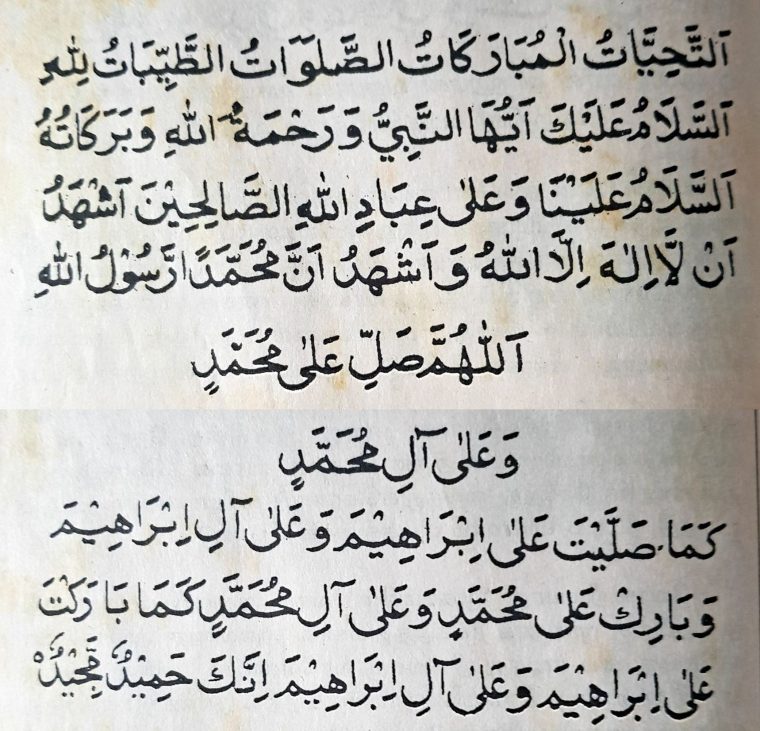 اَلتَّحِيَّاتُ الْمُبَارَكَاتُ الصَّلَوَاتُ الطَّيِّبَاتُ لِلّٰهِ
اَلسَّلَامُ عَلَيْكَ اَيُّهَا النَّبِيُّ وَرَحْمَةُ اللهِ وَبَرَكَاتُهُ
اَلسَّلَامُ عَلَيْنَا وَعَلٰى عِبَادِ اللهِ الصَّالِحِيْنَ اَشْهَدُ
اَنْ لَّا اِلٰهَ اِلَّا اللهُ وَاَشْهَدُ اَنَّ مُحَمَّدًا رَّسُوْلُ اللهِ
اَللّٰهُمَّ صَلِّ عَلٰى مُحَمَّدٍ
وَعَلٰى آلِ مُحَمَّدٍ
كَمَا صَلَّيْتَ عَلٰى اِبْرَاهِيْمَ وَعَلٰى آلِ اِبْرَاهِيْمَ
وَبَارِكْ عَلٰى مُحَمَّدٍ وَعَلٰى آلِ مُحَمَّدٍ كَمَا بَارَكْتَ
عَلٰى اِبْرَاهِيْمَ وَعَلٰى آلِ اِبْرَاهِيْمَ اِنَّكَ حَمِيْدٌ مَّجِيْدٌ